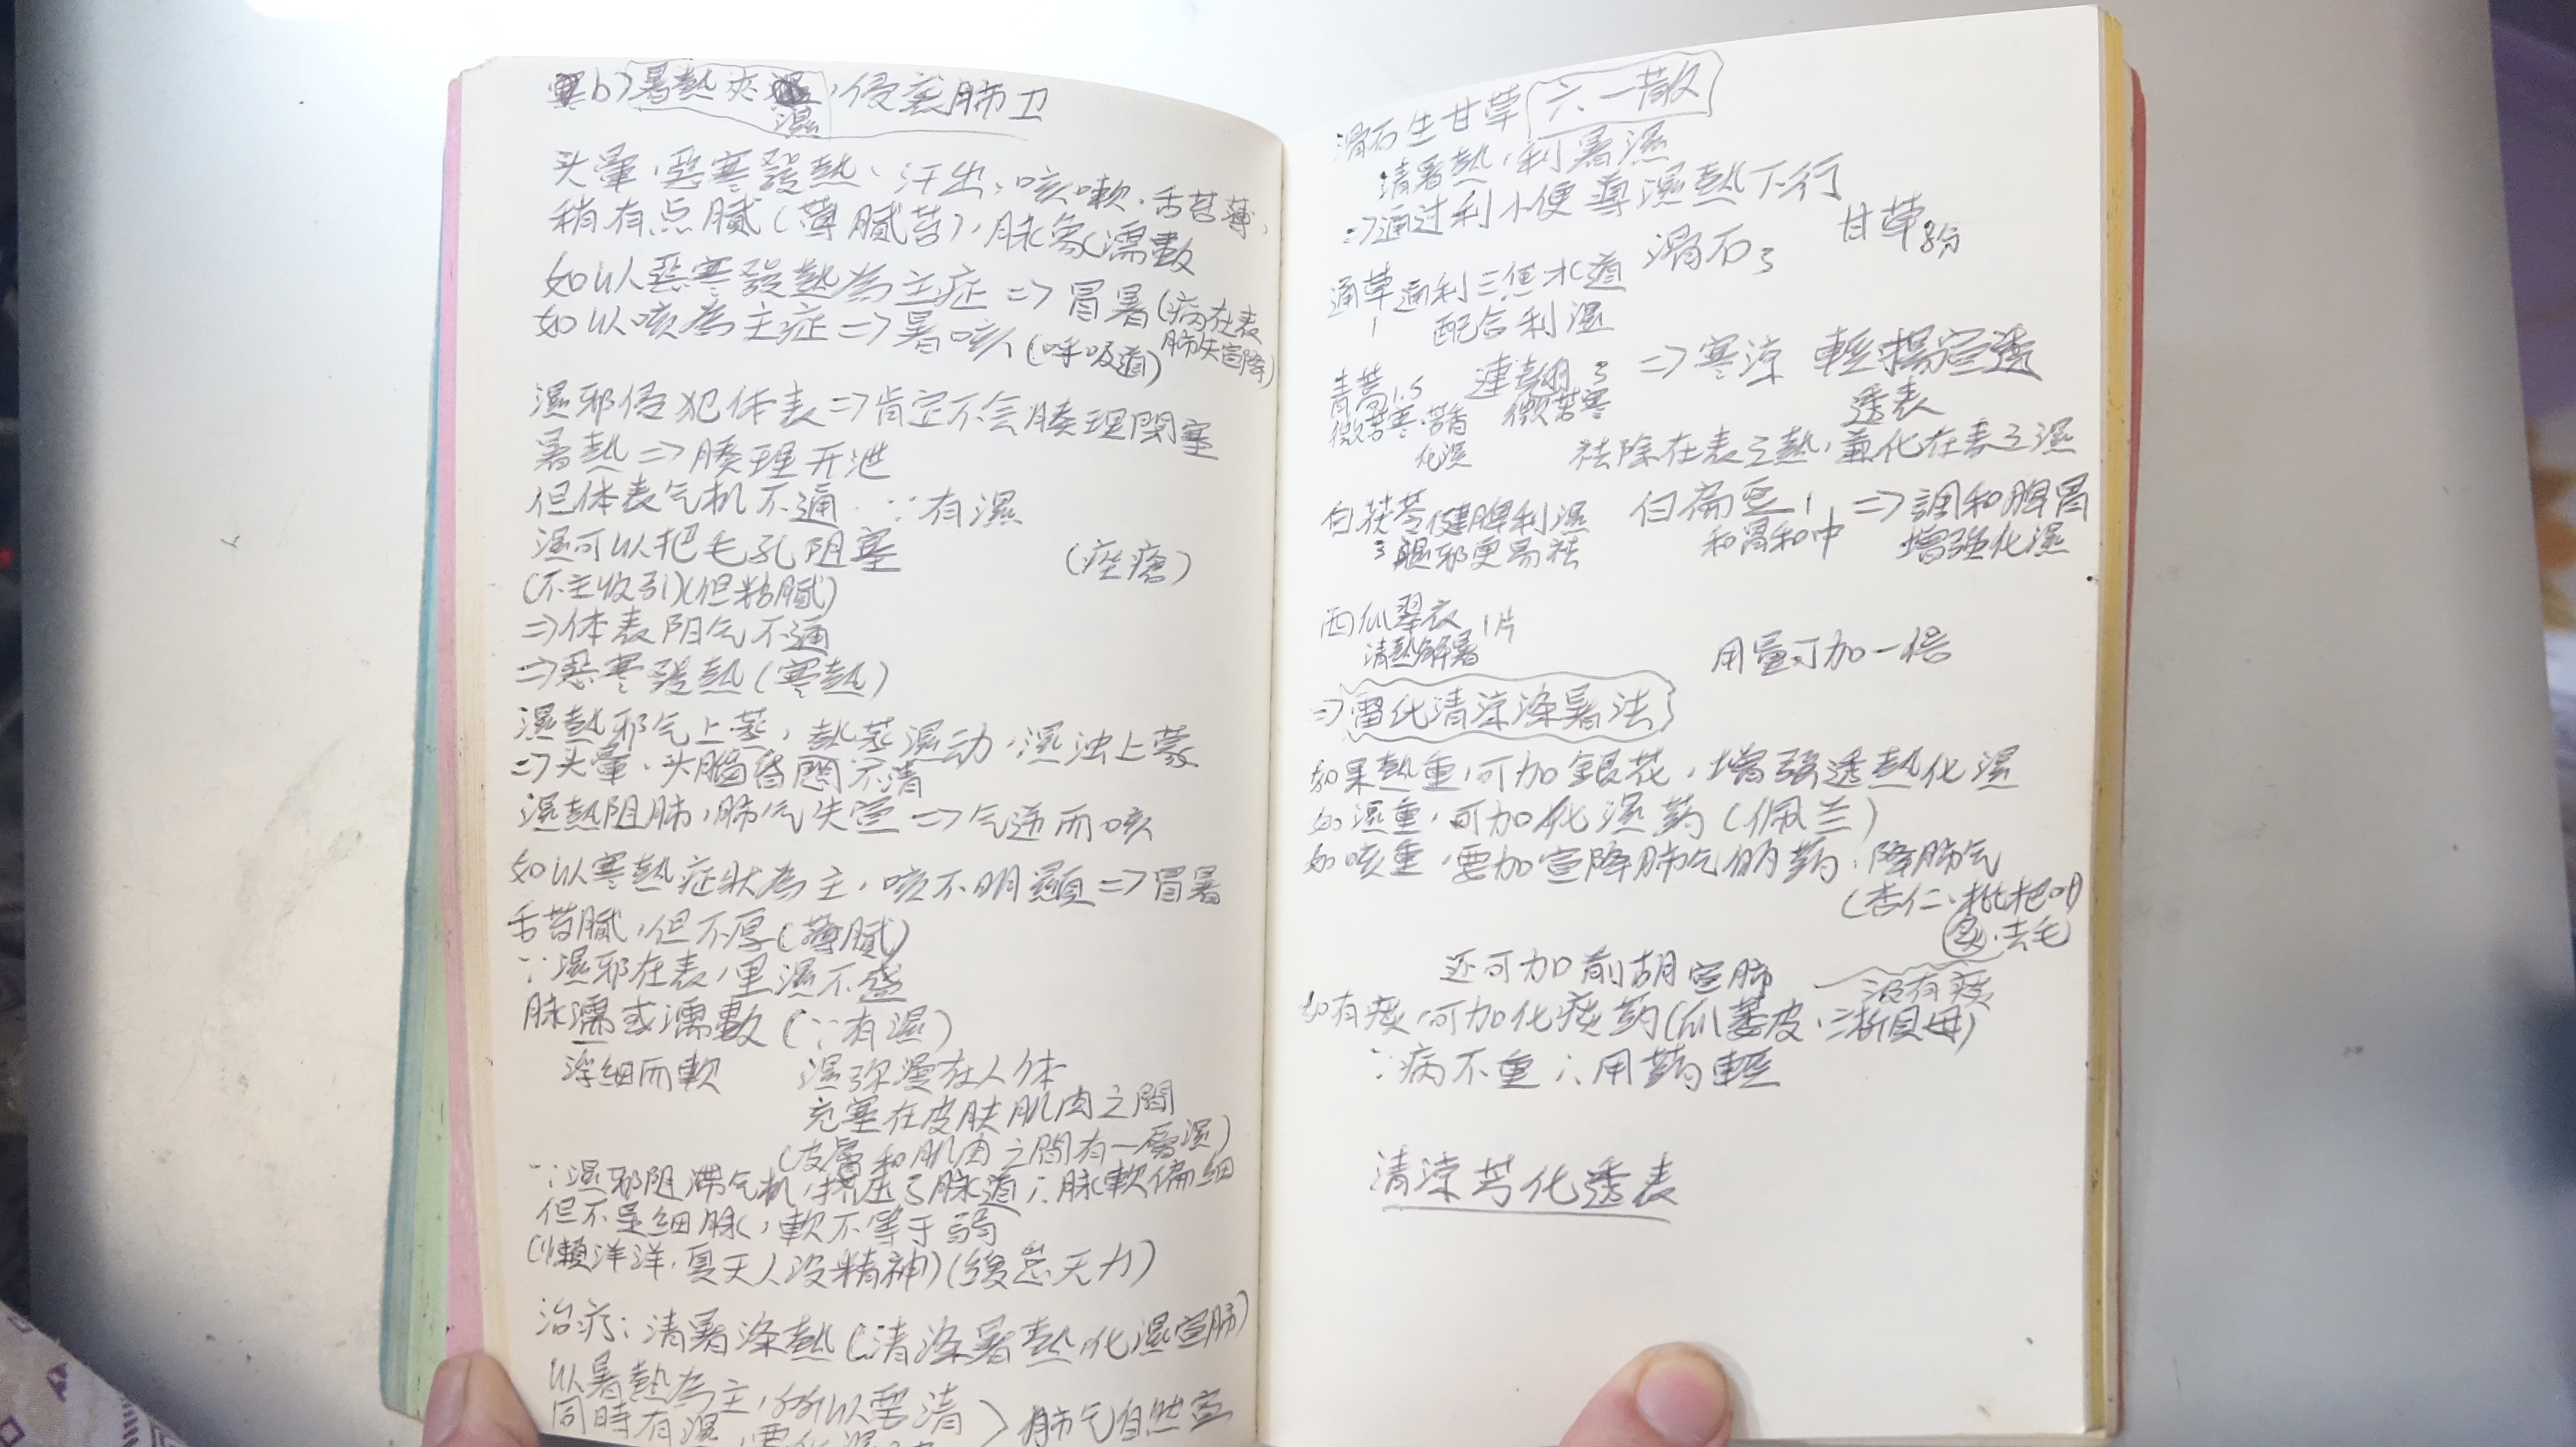 b) 暑熱夾濕，侵襲肺卫
头暈、惡寒發熱、汗出、咳嗽、舌苔薄，
稍有点膩(薄膩苔)，脉象濡數
如以惡寒發熱為主症 => 冒暑(病在表
如以咳為主症 => 暑咳(呼吸道) 肺失宣降)
濕邪侵犯体表 => 肯定不会腠理閉塞
暑熱 => 腠理开泄
但体表气机不通 ∵有濕
濕可以把毛孔阻塞 (痤瘡)
(不主收引)(但粘膩)
=>体表阳气不通
=>惡寒發熱(寒熱)
濕熱邪气上蒸，熱蒸濕动，濕浊上蒙
=>头暈、头腦昏悶不清
濕熱阻肺，肺气失宣 => 气逆而咳
如以寒熱症狀為主，咳不明顯 => 冒暑
舌苔膩，但不厚(薄膩)
∵濕邪在表，里濕不盛
脉濡或濡數(∵有濕)
浮細而軟 濕弥漫在人体
充塞在皮肤肌肉之間
(皮膚和肌肉之間有一層濕)
∵濕邪阻滯气机，擠压了脉道∴脉軟偏細
但不是細脉，軟不等于弱
(懶洋洋，夏天人没精神)(緩怠无力)
治疗：清暑滌熱(清滌暑熱，化濕宣肺)
以暑熱為主，所以要清
同時有濕，要化濕 > 肺气自然宣
滑石生甘草 六一散
清暑熱，利暑濕
=>通过利小便導濕熱下行
滑石3 甘草8分
通草 通利三焦水道
1 配合利濕
青蒿1.5 連翹3 => 寒涼 輕揚宣透
微苦寒·苦香 微苦寒 透表
化濕 祛除在表之熱，兼化在表之濕
白茯苓 健脾利濕 白扁豆1 => 調和脾胃
3 濕邪更易祛 和胃和中 增强化濕
西瓜翠衣 1片
清熱解暑 用量可加一倍
=>雷氏清涼滌暑法
如果熱重，可加銀花，增强透熱化濕
如濕重，可加化濕药(佩兰)
如咳重，要加宣降肺气的药：降肺气
(杏仁、枇杷叶)
炙·去毛
还可加前胡宣肺 没有痰
如有痰，可加化痰药(瓜蔞皮、浙貝母)
∵病不重∴用药輕
清涼芳化透表